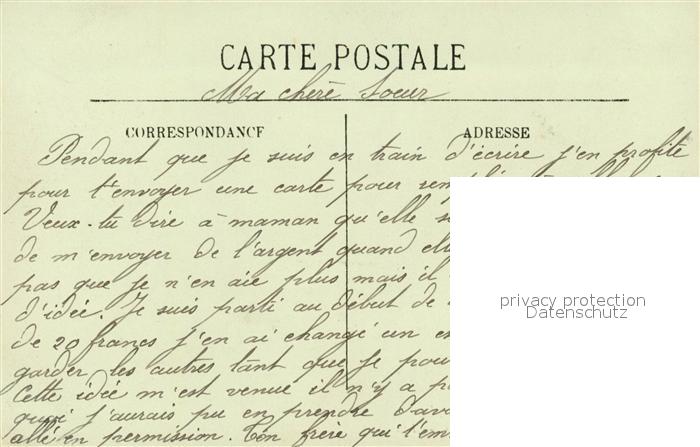 CARTE POSTALE
Ma chère Soeur
CORRESPONDANCE
ADRESSE
Pendant que je suis en train d'écrire j'en profite
pour t'envoyer une carte pour
Veux-tu dire à maman qu'elle
de m'envoyer de l'argent quand
pas que je n'en aie plus mais il
d'idée. Je suis parti au début de
de 20 francs j'en ai changé un
garder les autres tant que je
Cette idée m'est venue il n'y a
quoi j'aurais pu en prendre
allé en permission. Ton frère qui
privacy protection
Datenschutz